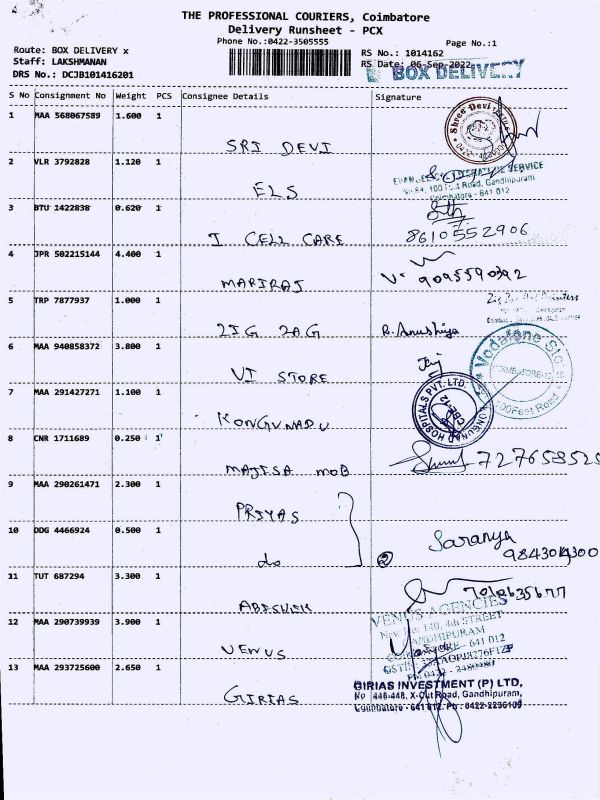 THE PROFESSIONAL COURIERS, Coimbatore
Delivery Runsheet - PCX
Phone No.:0422-3505555
Page No.:1
Route: BOX DELIVERY x
RS No.: 1014162
Staff: LAKSHMANAN
RS Date: 06-Sep-2022
DRS No.: DCJB101416201
BOX DELIVERY
S No Consignment No Weight PCS Consignee Details Signature
1 MAA 568067589 1.600 1
SRI DEVI
Shree Devi
2 VLR 3792828 1.120 1
ELS
SERVICE
100 Road, Gandhipuram
Coimbatore - 641 012
3 BTU 1422838 0.620 1
I CELL CARE
8610552906
4 JPR 502215144 4.400 1
MARIRAJ
5 TRP 7877937 1.000 1
ZIG ZAG
R. Anushiya
6 MAA 940858372 3.800 1
VI STORE
Vodafone Sto
100Feet Road
7 MAA 291427271 1.100 1
KONGUNADU
HOSPITALS PVT. LTD.
CBE-12
8 CNR 1711689 0.250 1
MAJISA MOB
727658525
9 MAA 290261471 2.300 1
PRIYAS
10 DDG 4466924 0.500 1
do
2
Saranya
11 TUT 687294 3.300 1
ABISHEK
12 MAA 290739939 3.900 1
VENUS
VENUS AGENCIES
4th STREET
GANDHIPURAM
641 012
13 MAA 293725600 2.650 1
GIRIAS
GIRIAS INVESTMENT (P) LTD,
No 446-448, X-Cut Road, Gandhipuram,
Coimbatore - 641 012. Ph: 0422-2236109